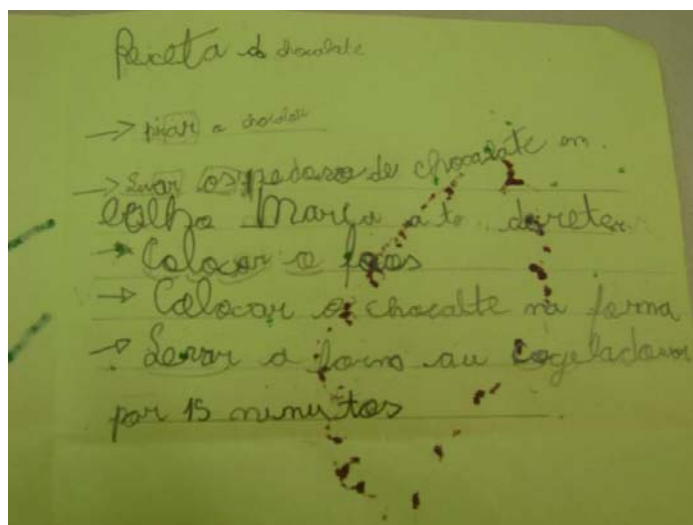 Receta do chocolate
→ picar o chocolate
→ Levar os pedaso de chocolate em
Colho Maria a te direter
→ Colocar o
→ Colocar o chocalte na forma
→ Levar a form au cogeladouor
por 15 minutos